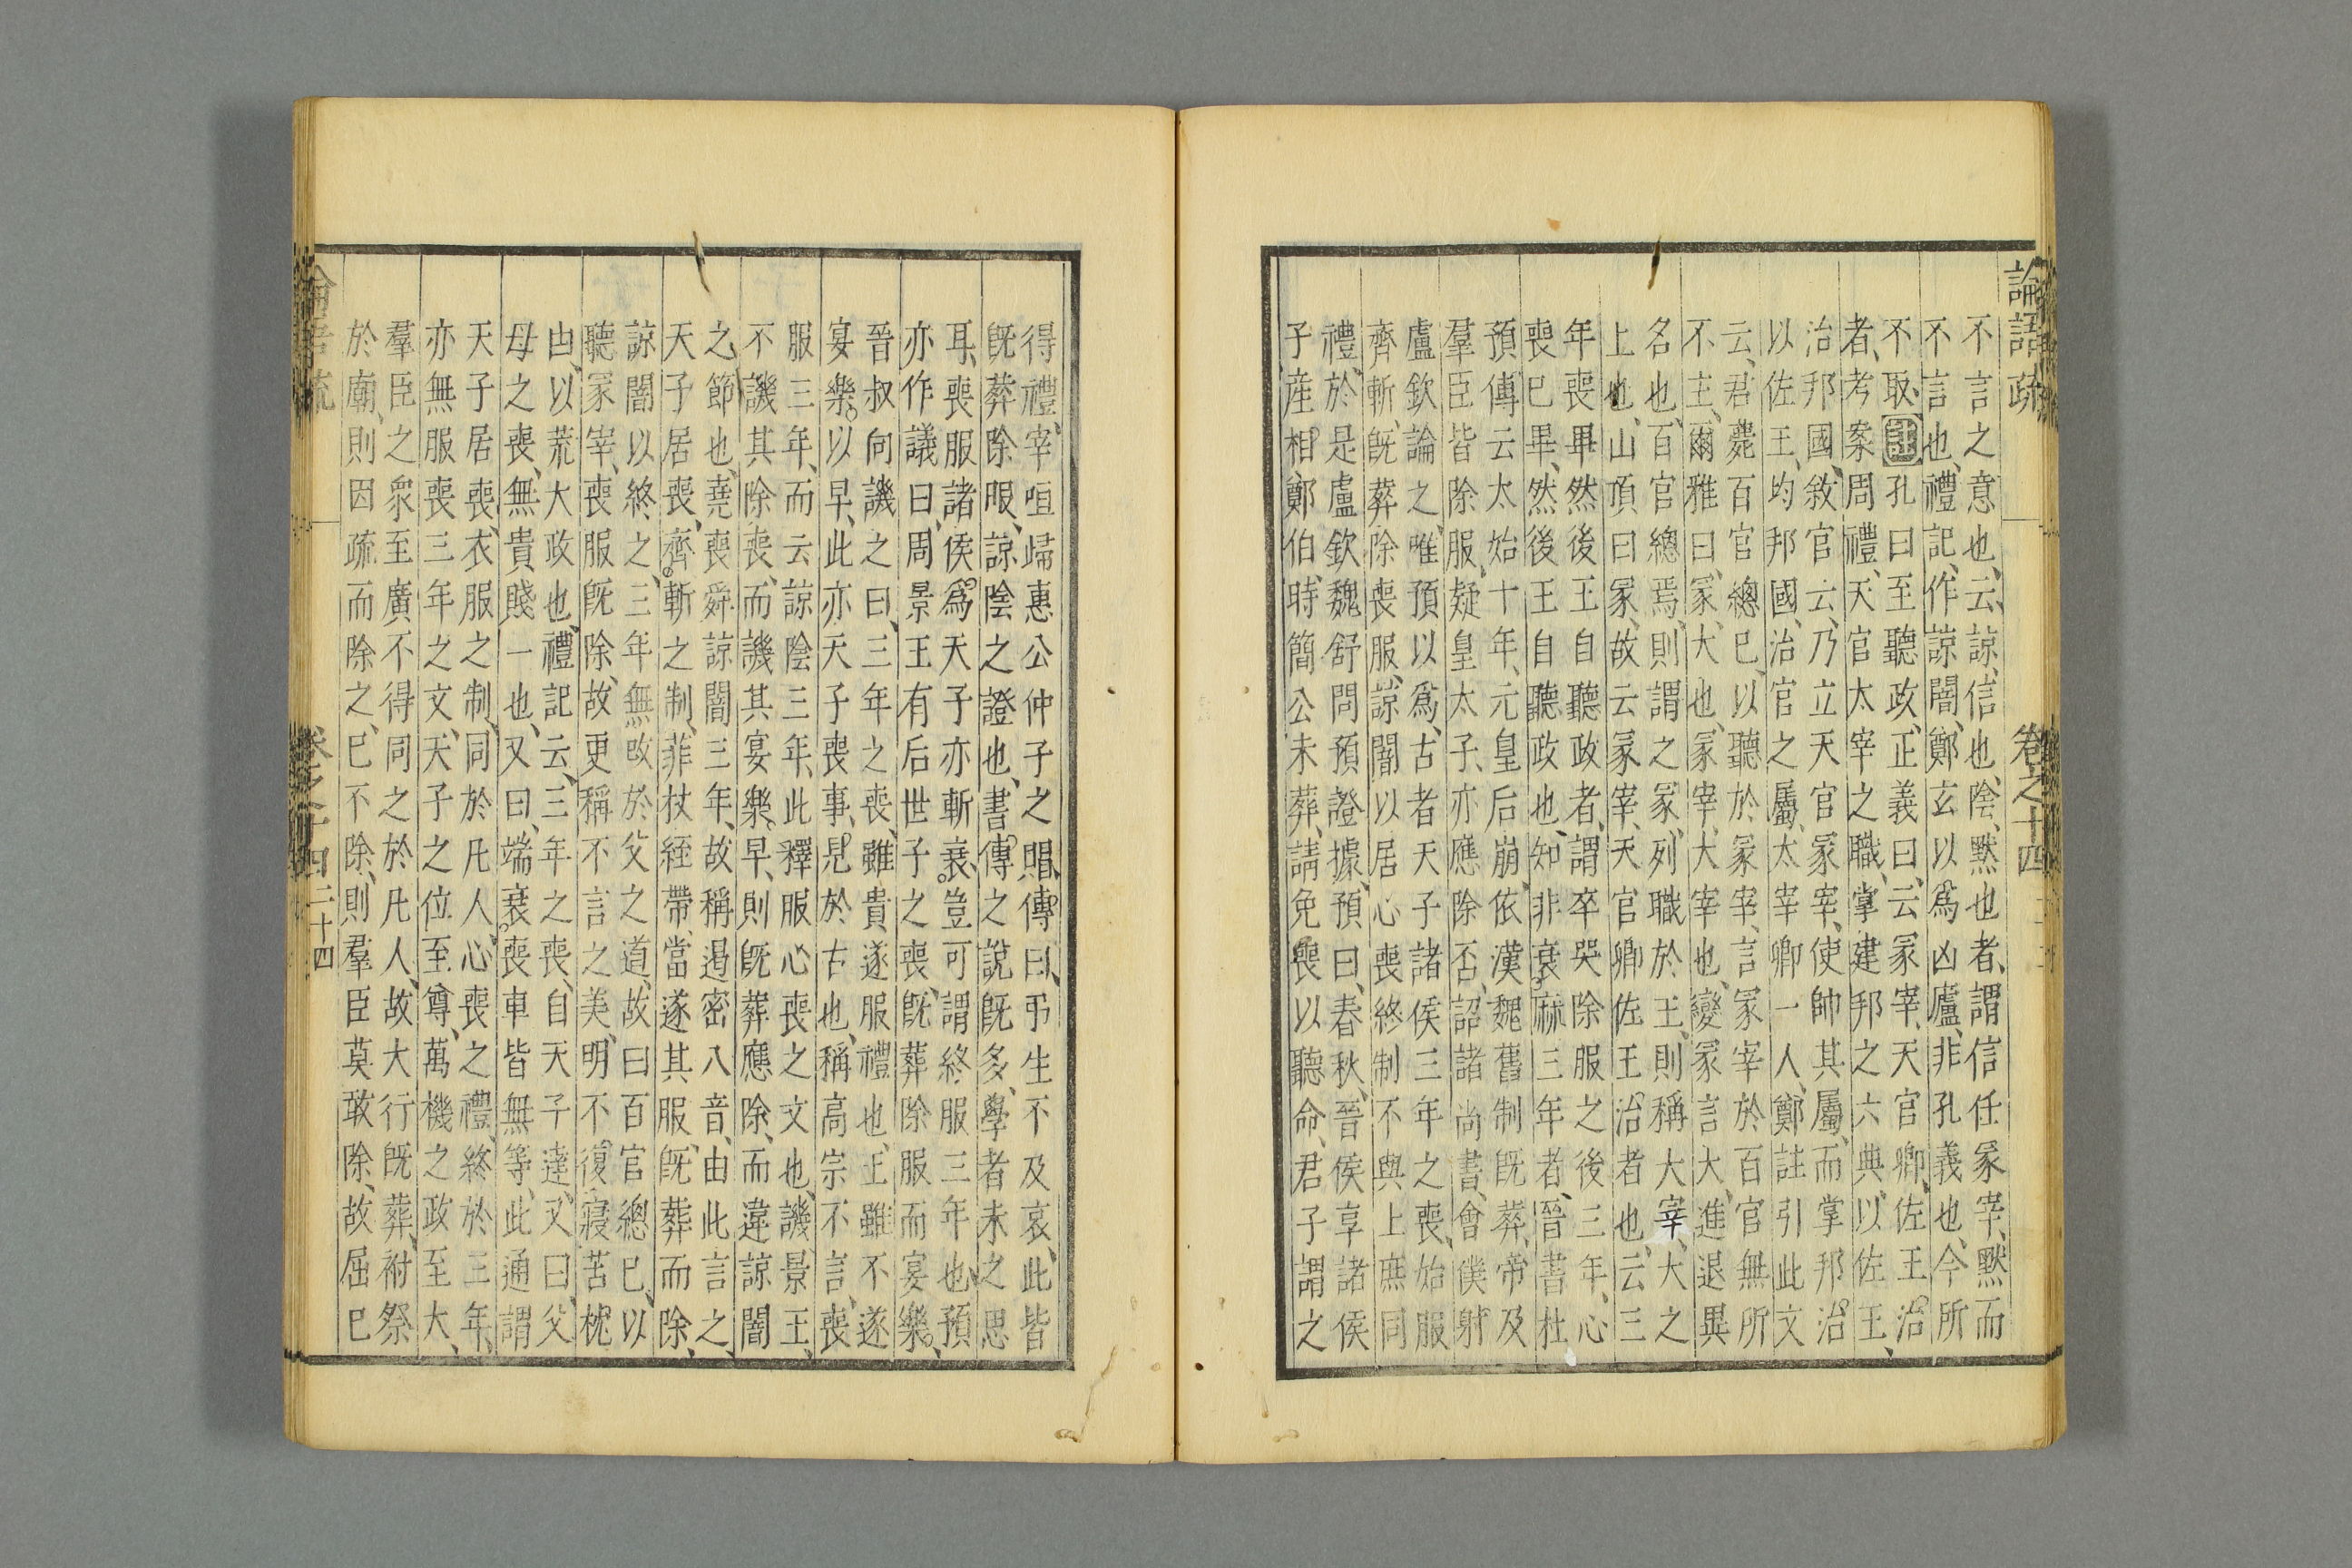 論語疏
卷之十四
不言之意也、云、諒、信也、陰、默也者、謂信任冢宰、默而
不言也、禮記、作諒闇、鄭玄以爲凶廬、非孔義也、今所
不取、註孔曰、至聽政、正義曰、云冢宰、天官卿、佐王治
者、考案周禮、天官太宰之職、掌建邦之六典、以佐王、
治邦國、敘官云、乃立天官冢宰、使帥其屬、而掌邦治、
以佐王、均邦國、治官之屬、太宰、卿一人、鄭註引此文
云、君薨百官總已、以聽於冢宰、言冢宰於百官無所
不主、爾雅曰、冢、大也、冢宰、大宰也、變冢言大、進退異
名也、百官總焉、則謂之冢、列職於王、則稱大宰、大之
上也、山頂曰冢、故云冢宰、天官卿佐王治者也、云三
年喪畢、然後王自聽政者、謂卒哭除服之後三年、心
喪已畢、然後王自聽政也、知非衰麻三年者、晉書杜
預傳云、太始十年、元皇后崩、依漢魏舊制旣葬、帝及
羣臣皆除服、疑皇太子、亦應除否、詔諸尚書會僕射
盧欽論之、唯預以爲、古者天子諸侯三年之喪、始服
齊斬、旣葬除喪服、諒闇以居心喪終制、不與上庶同
禮、於是盧欽魏舒問預證據、預曰、春秋、晉侯享諸侯
子産相鄭伯、時簡公未葬、請免喪以聽命、君子謂之
得禮、宰咺歸惠公仲子之賵、傳曰、弔生不及哀、此皆
旣葬除服、諒陰之證也、書傳之說旣多、學者未之思
耳、喪服諸侯爲天子亦斬衰、豈可謂終服三年也、預
亦作議曰、周景王有后世子之喪、旣葬除服而宴樂、
晉叔向譏之曰、三年之喪、雖貴遂服、禮也、王雖不遂
宴樂、以早、此亦天子喪事、見於古也、稱高宗不言、喪
服三年、而云諒陰三年、此釋服心喪之文也、譏景王、
不譏其除喪、而譏其宴樂早、則旣葬應除、而違諒闇
之節也、堯喪舜諒闇三年、故稱遏密八音、由此言之、
天子居喪、齊斬之制、菲杖絰帶、當遂其服、旣葬而除、
諒闇以終之、三年無改於父之道、故曰百官總已、以
聽冢宰、喪服旣除、故更稱不言之美、明不復寢苫枕
凷、以荒大政也、禮記云、三年之喪、自天子達、又曰、父
母之喪、無貴賤一也、又曰、端衰喪車皆無等、此通謂
天子居喪、衣服之制、同於凡人、心喪之禮、終於三年、
亦無服喪三年之文、天子之位至尊、萬機之政至大、
羣臣之衆至廣、不得同之於凡人、故大行旣葬、祔祭
於廟、則因疏而除之、已不除、則羣臣莫敢除、故屈已
卷之十四
二十四